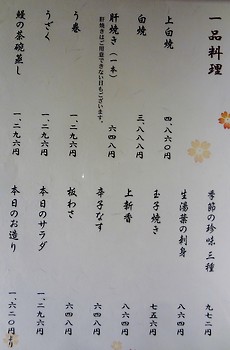 一品料理
上白焼 四、八六〇円
白焼 三、八八八円
肝焼き（一本） 六四八円
肝焼きはご用意できない日もございます。
う巻 一、二九六円
うざく 一、二九六円
鰻の茶碗蒸し 一、二九六円
季節の珍味 三種 九七二円
生湯葉の刺身 八六四円
玉子焼き 七五六円
上新香 八六四円
辛子なす 六四八円
板わさ 六四八円
本日のサラダ 一、二九六円
本日のお造り 一、六二〇円より